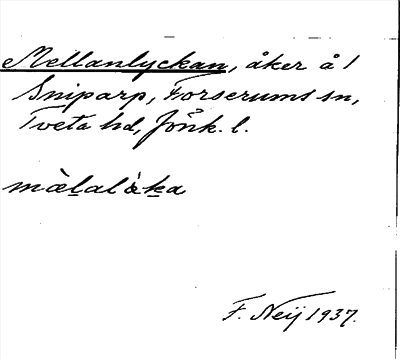 Mellanlyckan, åker å 1
Sniparp, Forserums sn,
Tveta hd, Jönk. l.
mæ̀l̠alø̀k̠a
F. Neij 1937.